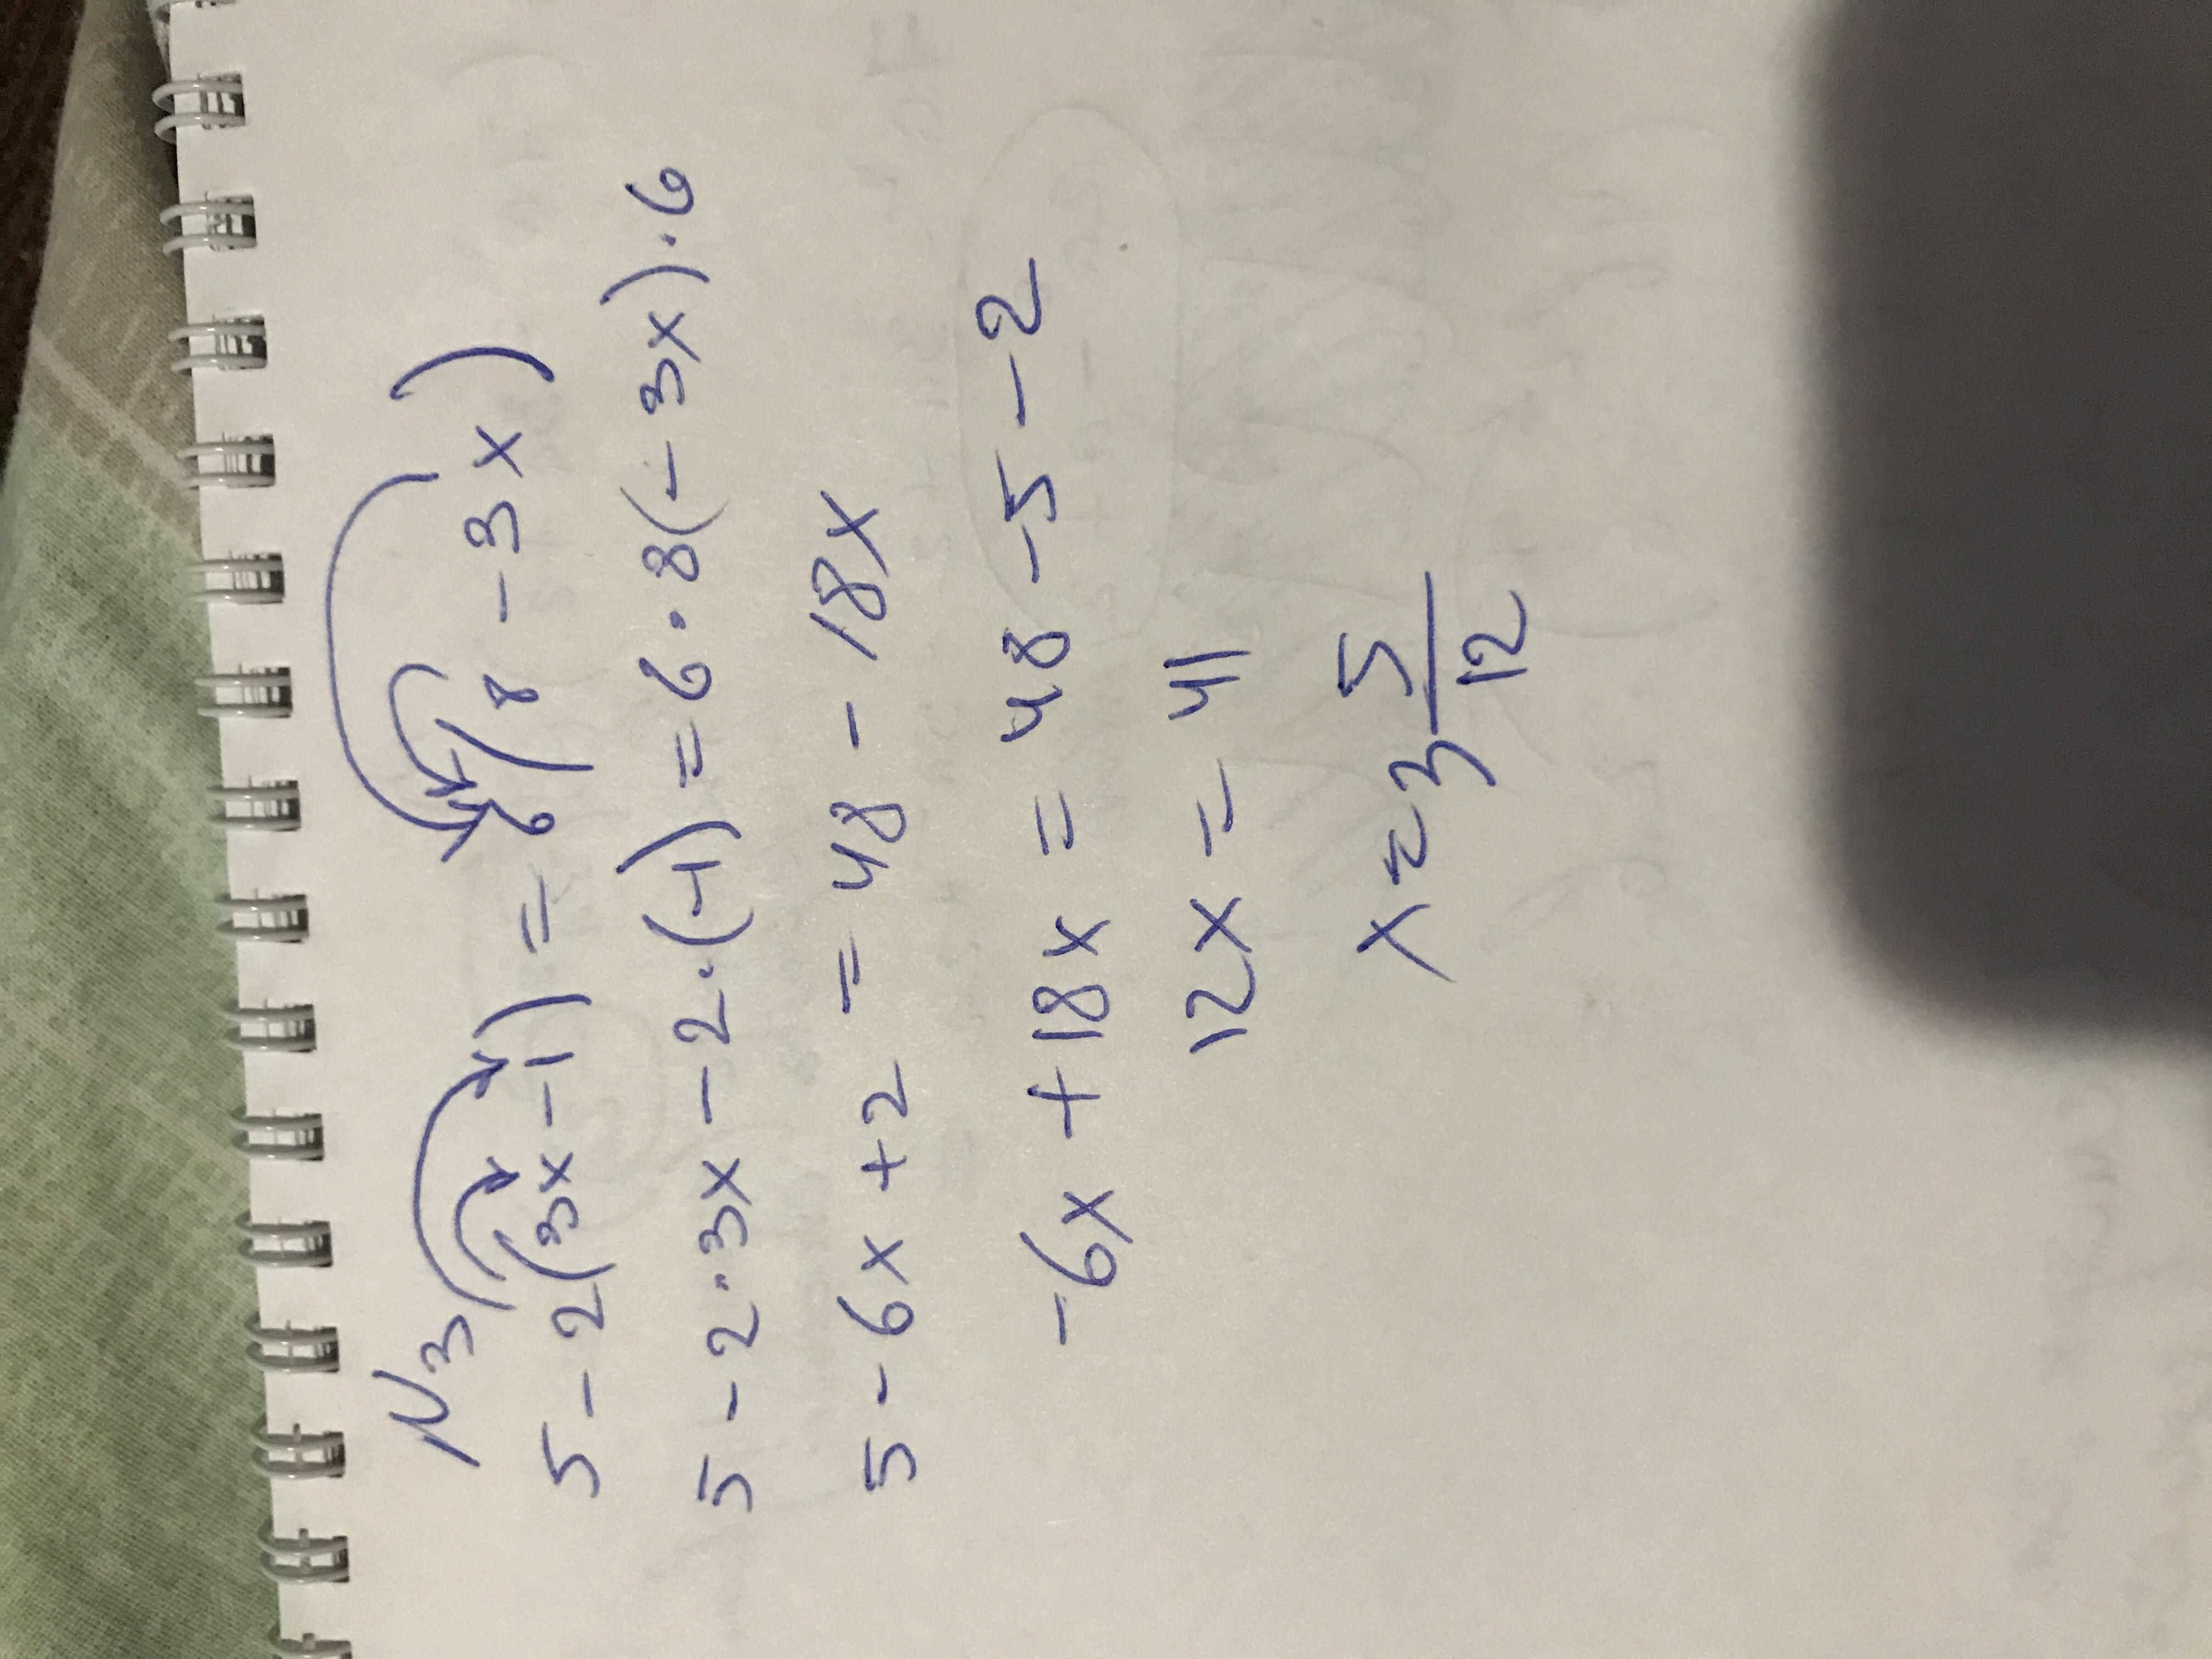 N3
5 - 2(3x - 1) = 6(8 - 3x)
5 - 2·3x - 2·(-1) = 6·8(-3x)·6
5 - 6x + 2 = 48 - 18x
-6x + 18x = 48 - 5 - 2
12x = 41
x = 3 5/12